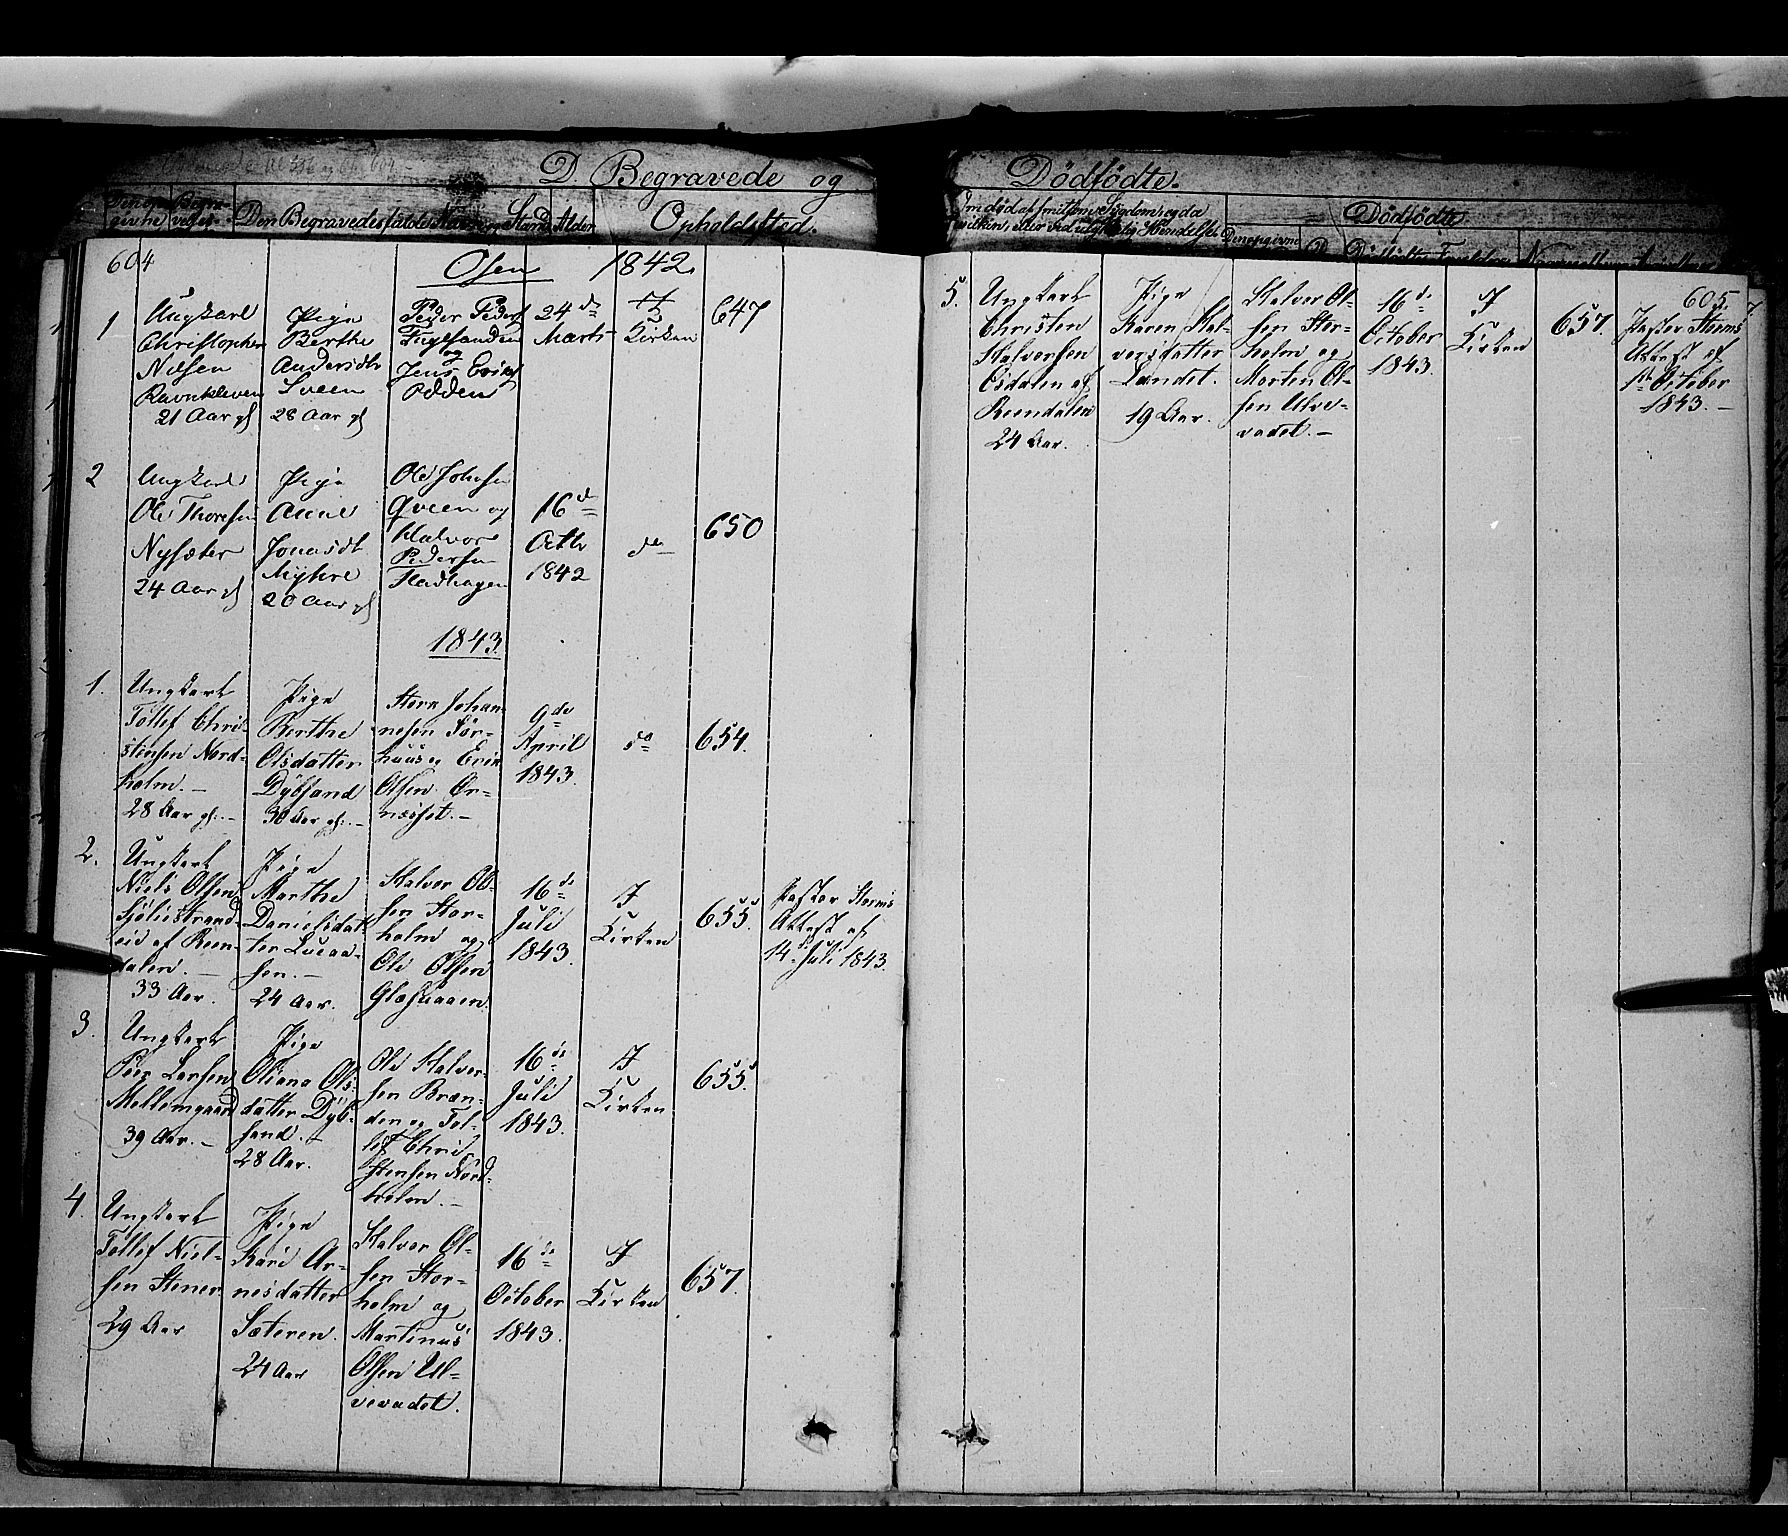 D. Begravede og
Dödfödte.
Den Begravedes fulde Navn og Stand
Alder
Opholdssted.
Dödfödte
604
Osen 1842.
1
Ungkarl
Christopher
Nilsen
Ravnkleven
21 Aar gl
Pige
Berthe
Andersdtr
Sveen
28 Aar gl
Peder Peders
Fuglsanden
og
Jens Eriks
Odden
24de
Marts
I
Kirken
647
2
Ungkarl
Ole Thoresen
Nysæter
24 Aar gl
Pige
Anne
Jonasdt
Myhre
20 Aar gl
Ole Johnsen
Qveen og
Halvor
Pedersen
Fladhagen
16de
Octbr
1842
do
650
1843.
1.
Ungkarl
Tollef Chri-
stensen Nord-
holm.-
28 Aar gl.-
Pige
Berthe
Olsdatter
Dybsand
30 Aar gl.-
Johan-
nesen Sør-
huus og Erik
Olsen Ør-
næsset.-
9de
April
1843.
do
654.
2.
Ungkarl
Niels Olsen
Sjøliestrand-
eid af Reen-
dalen.-
33 Aar.
Pige
Marthe
Danielsdat-
ter Lucaa-
sen.-
24 Aar.
Halvor Ol-
sen Stor-
holm og
Ole Olsen
16de
Juli
1843.
I
Kirken
655.
Pastor Storms
Attest af
14de Juli 1843.
3.
Ungkarl
Peer Larsen
Mellemgaard
39 Aar.-
Pige
Oliana Ols-
datter Dyb-
sand.-
28 Aar.
Ole Halvor-
sen Bræn-
den og Tol-
lef Chri
stensen Nord-
holm.-
16de
Juli
1843.
I
Kirken
655.
4.
Ungkarl
Tollef Niel-
sen Stener
29 Aar
Pige
Kari Ar-
nesdatter
Sæteren.
24 Aar
Halvor Ol-
sen Stor-
holm og
Martinus
Olsen Ul-
vevadet.
16de
October
1843.
I
Kirken
657.
605.
5.
Ungkarl
Christen
Halvorsen
Osdalen af
Reendalen
24 Aar.
Pige
Karen Hal-
vorsdatter
Landet.
19 Aar.
Halvor Ol-
sen Stor-
holm og
Morten Ol-
sen Ulve-
vadet.-
16de
October
1843.
I
Kirken
657.
Pastor Storms
Attest af
1ste October
1843.-